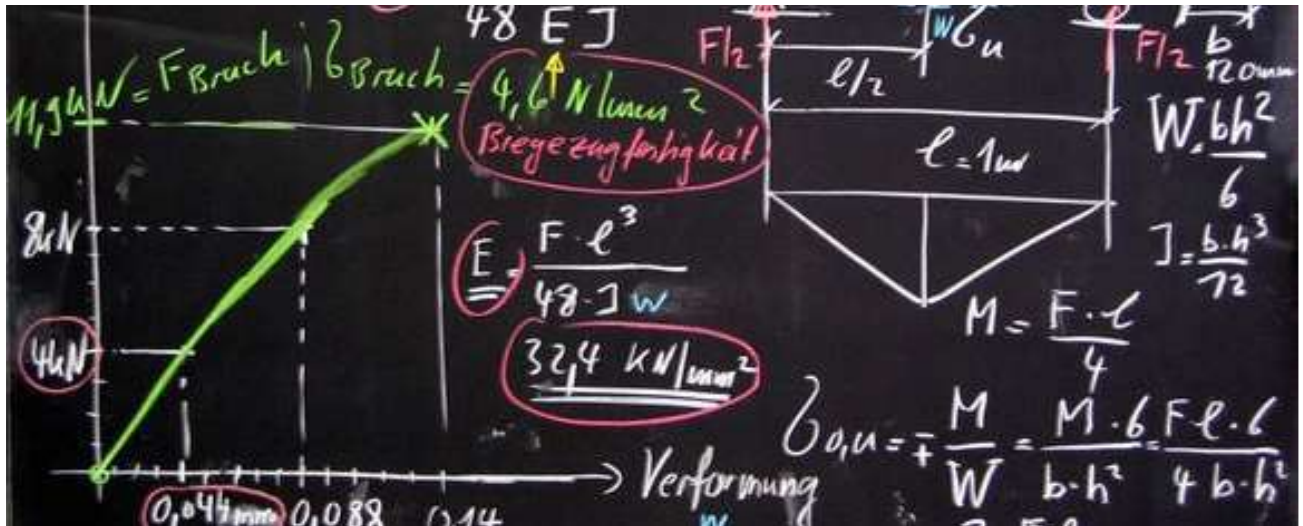 48 E J
11,9 kN = F Bruch ; σ Bruch = 4,6 N/mm²
Biegezugfestigkeit
8kN
4kN
0,044mm 0,088 0,14
Verformung
w
E = F · l³ / 48 · J w
32,4 KN/mm²
F/2 w σu F/2
l/2
l = 1m
b
120mm
W = bh² / 6
J = b·h³ / 12
M = F · l / 4
σo,u = ∓ M / W = M · 6 / b·h² = F l · 6 / 4 b·h²